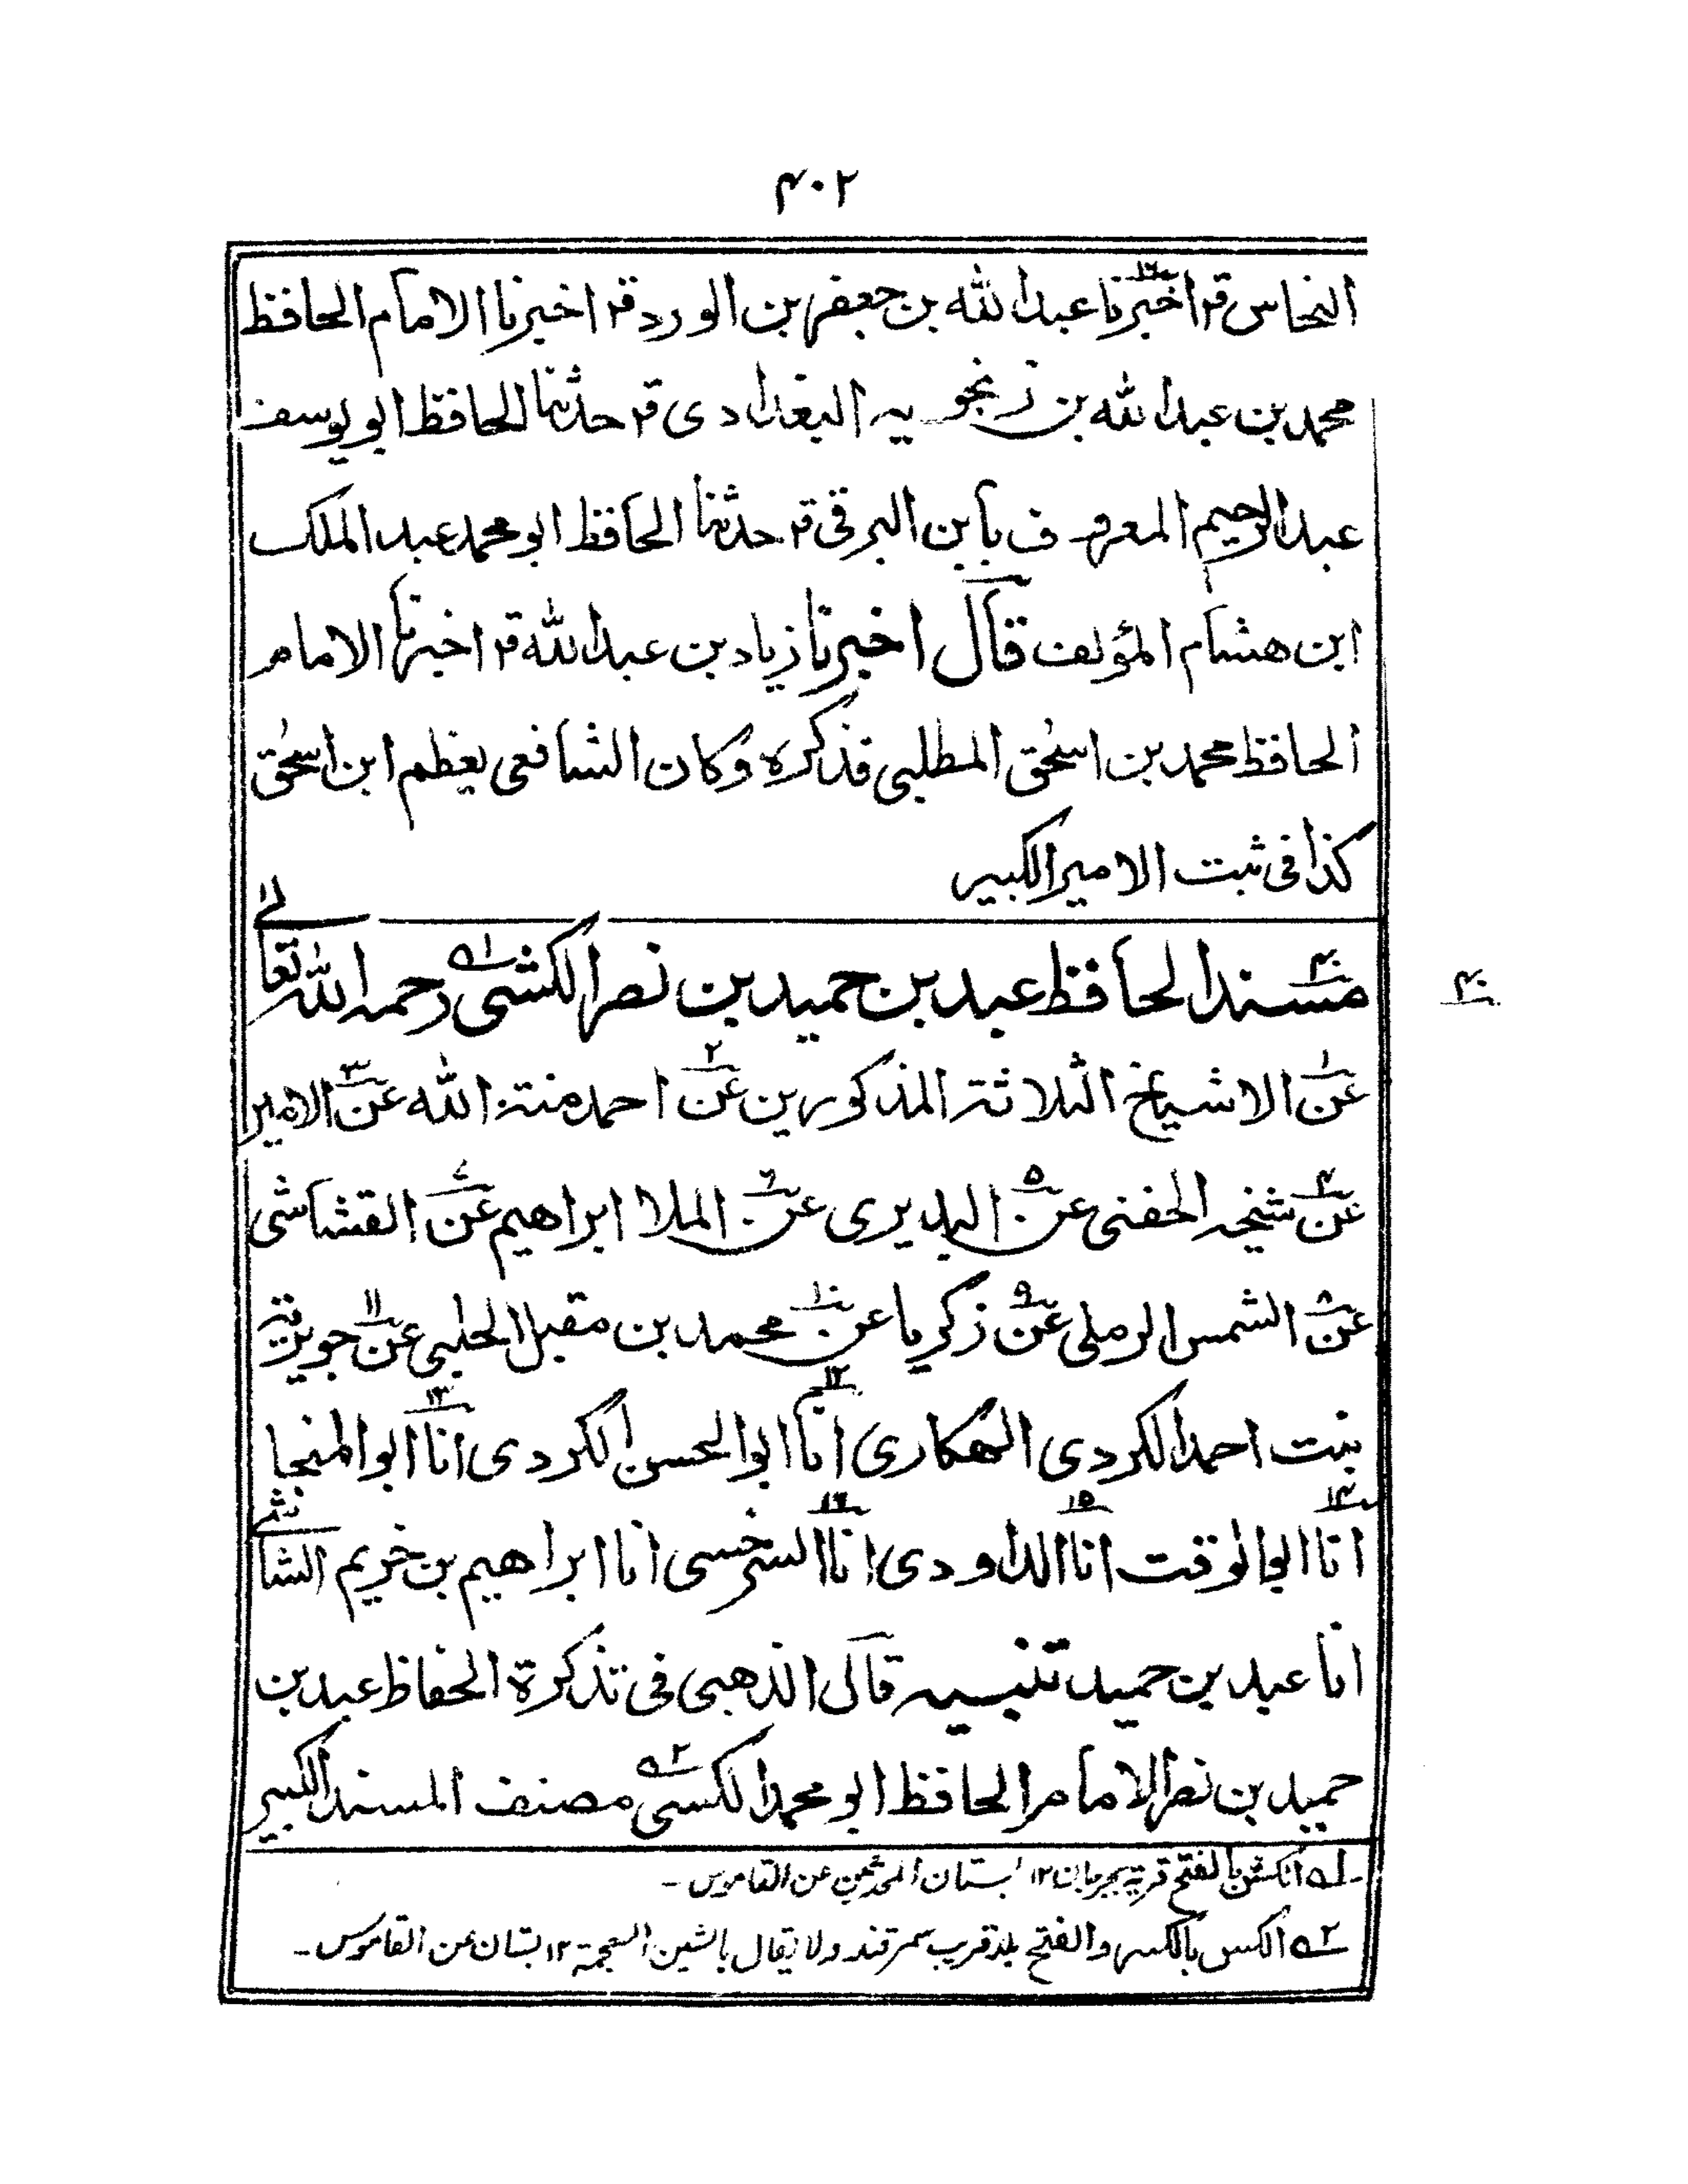 ۴۰۲
النحاس قر اخبرنا عبدالله بن جعفر بن الورد قر اخبرنا الامام الحافظ
محمد بن عبدالله بن زنجويه البغدادى قر حدثنا الحافظ ابو يوسف
عبدالرحيم المعروف بابن البرقى قر حدثنا الحافظ ابو محمد عبد الملك
ابن هشام المؤلف قال اخبرنا زياد بن عبدالله قر اخبرنا الامام
الحافظ محمد بن اسحٰق المطلبى فذكره وكان الشافعى يعظم ابن اسحٰق
كذا فى ثبت الامير الكبير
مسند الحافظ عبد بن حميد بن نصر الكشى رحمه الله تعالے
۴۰
عن الاشياخ الثلاثة المذكورين عن احمد منة الله عن الامير
عن شيخه الحفنى عن البديرى عن الملا ابراهيم عن القشاشى
عن الشمس الرملى عن زكريا عن محمد بن مقبل الحلبى عن جويرية
بنت احمد الكردى الهكارى انا ابوالحسن الكردى انا ابو المنجا
انا ابوالوقت انا الداودى انا السرخسى انا ابراهيم بن خريم الشاشے
انا عبد بن حميد تنبيه قال الذهبى فى تذكرة الحفاظ عبد بن
حميد بن نصر الامام الحافظ ابو محمد الكسى مصنف المسند الكبير
۱ه الكش بالفتح قرية بجرجان ۱۲ بستان المحدثين عن القاموس -
۲ه الكس بالكسر والفتح بلد قريب سمرقند ولا يقال بالشين المعجمة ۱۲ بستان عن القاموس -